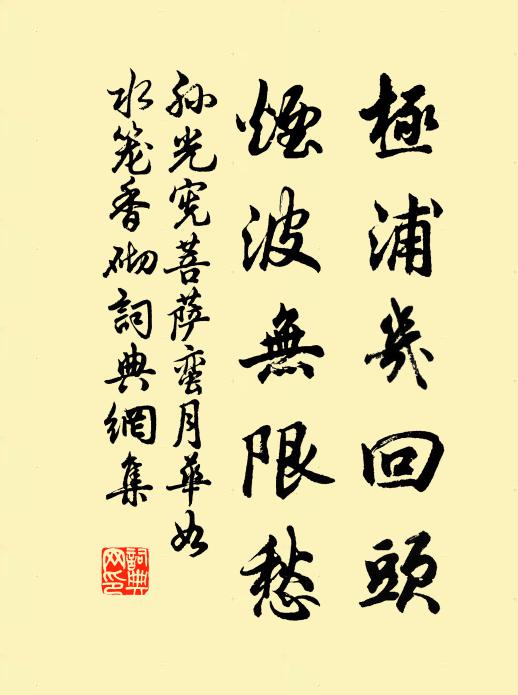 極浦幾回頭
煙波無限愁
孙光宪菩萨蛮月華如
水笼香砌詞典網集
詞典网印